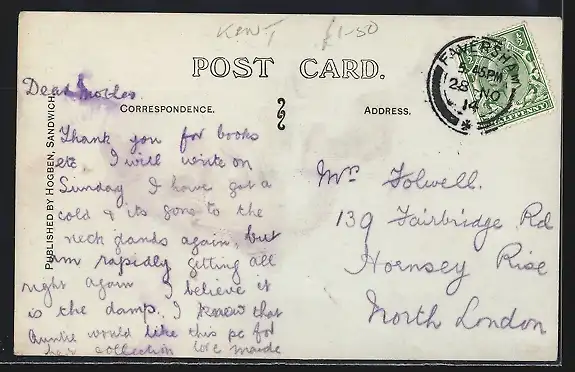 KENT £1-50
POST CARD.
FAVERSHAM
45PM
28 NO
14
HALFPENNY
CORRESPONDENCE.
ADDRESS.
PUBLISHED BY HOGBEN, SANDWICH.
Dear Mother
Thank you for books
etc. I will write on
Sunday I have got a
cold & its gone to the
neck glands again, but
am rapidly getting all
right again I believe it
is the damp. I know that
Auntie would like this pc for
her collection love Maude
Mrs Folwell.
139 Fairbridge Rd
Hornsey Rise
North London